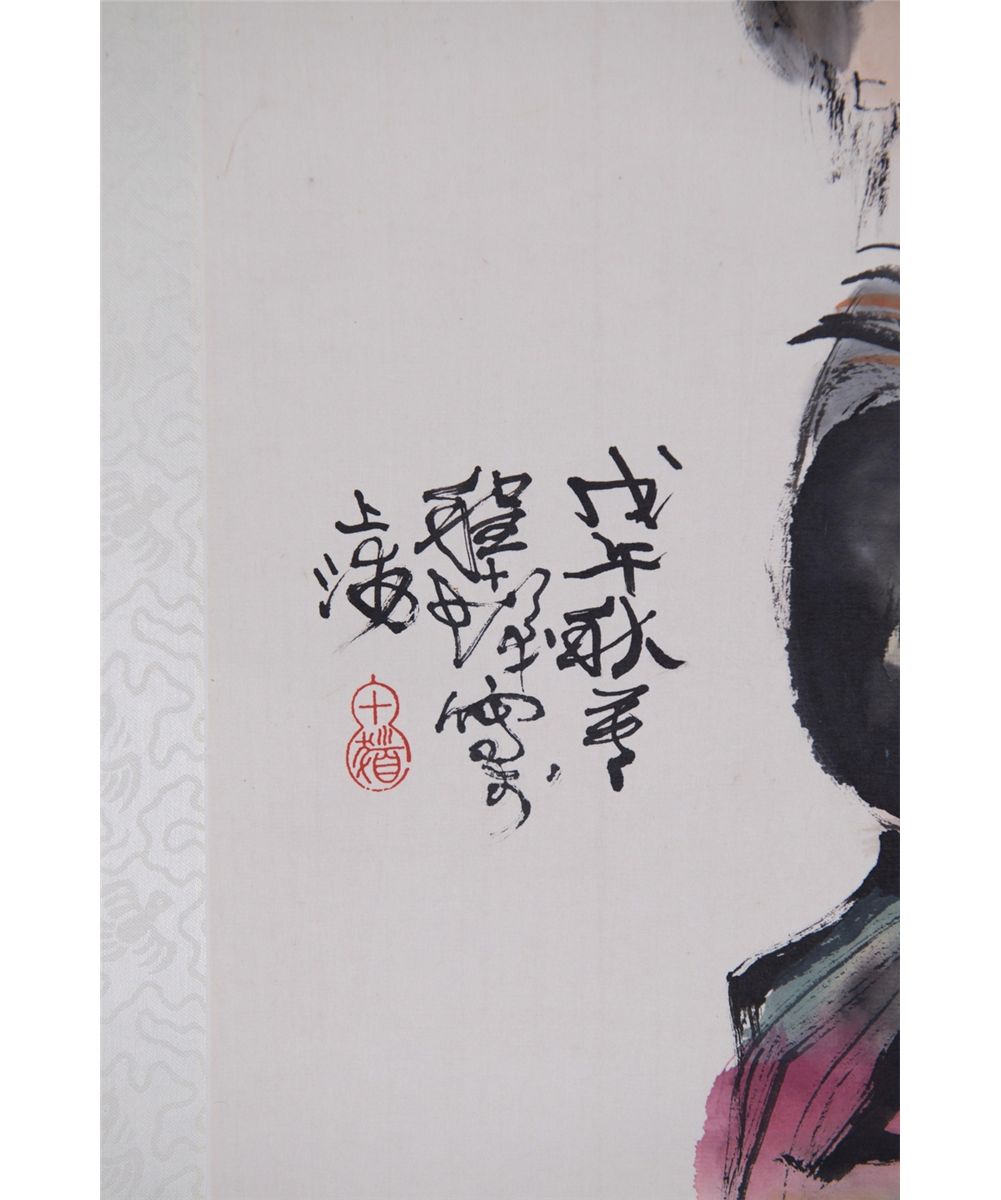 戊午秋
程十髮寫于
上海
十髮